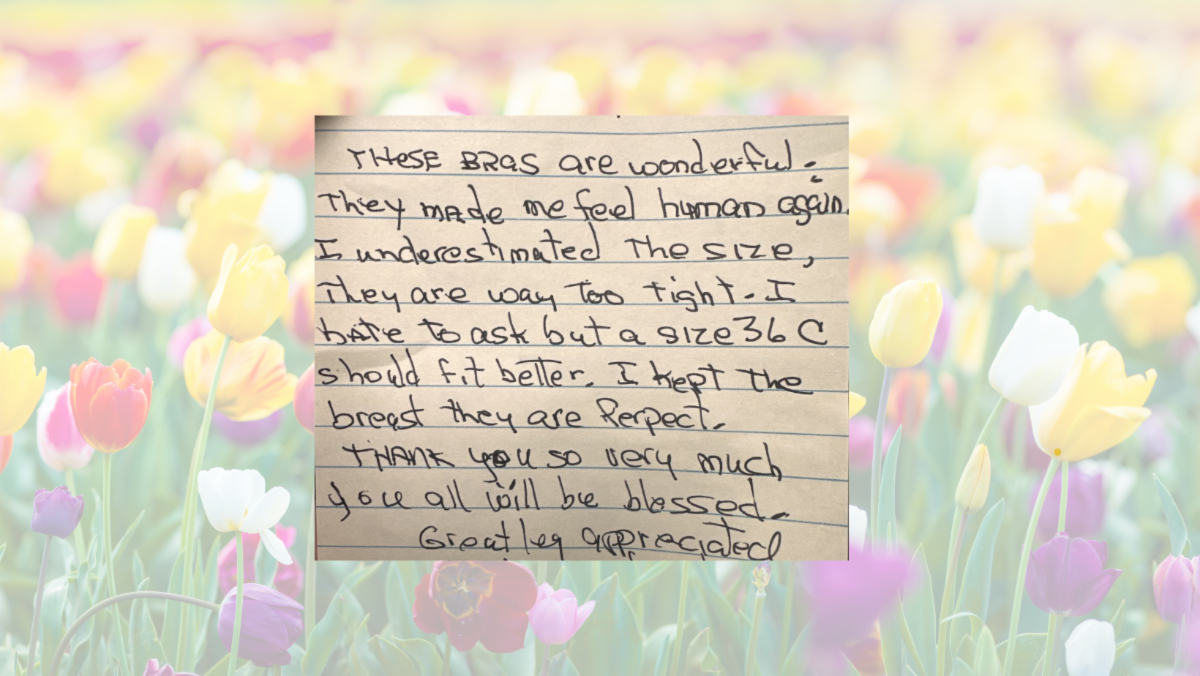 THESE BRAS are wonderful.
They made me feel human again.
I underestimated The size,
They are way Too tight. I
hate to ask but a size 36 C
should fit better. I kept the
breast they are Perpect.
THANK you so very much
you all will be blessed.
Greatley appreciated